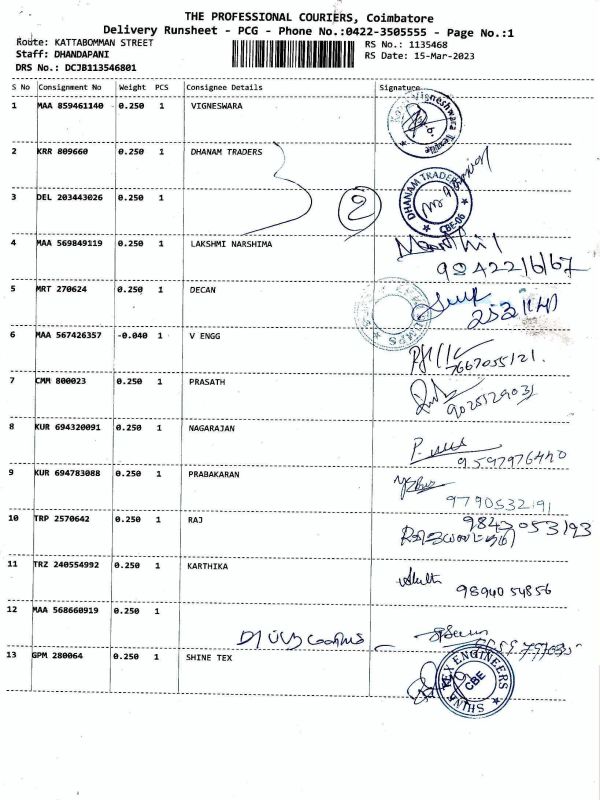 THE PROFESSIONAL COURIERS, Coimbatore
Delivery Runsheet - PCG - Phone No.:0422-3505555 - Page No.:1
Route: KATTABOMMAN STREET
Staff: DHANDAPANI
DRS No.: DCJB113546801
RS No.: 1135468
RS Date: 15-Mar-2023
S No Consignment No Weight PCS Consignee Details Signature
1 MAA 859461140 0.250 1 VIGNESWARA
Vigneshwara Textile
2 KRR 809660 0.250 1 DHANAM TRADERS
DHANAM TRADERS CBE-06
3 DEL 203443026 0.250 1
2
4 MAA 569849119 0.250 1 LAKSHMI NARSHIMA
98422/6/67
5 MRT 270624 0.250 1 DECAN
6 MAA 567426357 -0.040 1 V ENGG
7667055121.
7 CMM 800023 0.250 1 PRASATH
9025129031
8 KUR 694320091 0.250 1 NAGARAJAN
9597976440
9 KUR 694783088 0.250 1 PRABAKARAN
9790532191
10 TRP 2570642 0.250 1 RAJ
9843053193
11 TRZ 240554992 0.250 1 KARTHIKA
9894054856
12 MAA 568660919 0.250 1
13 GPM 280064 0.250 1 SHINE TEX
SHINE TEX ENGINEERS CBE